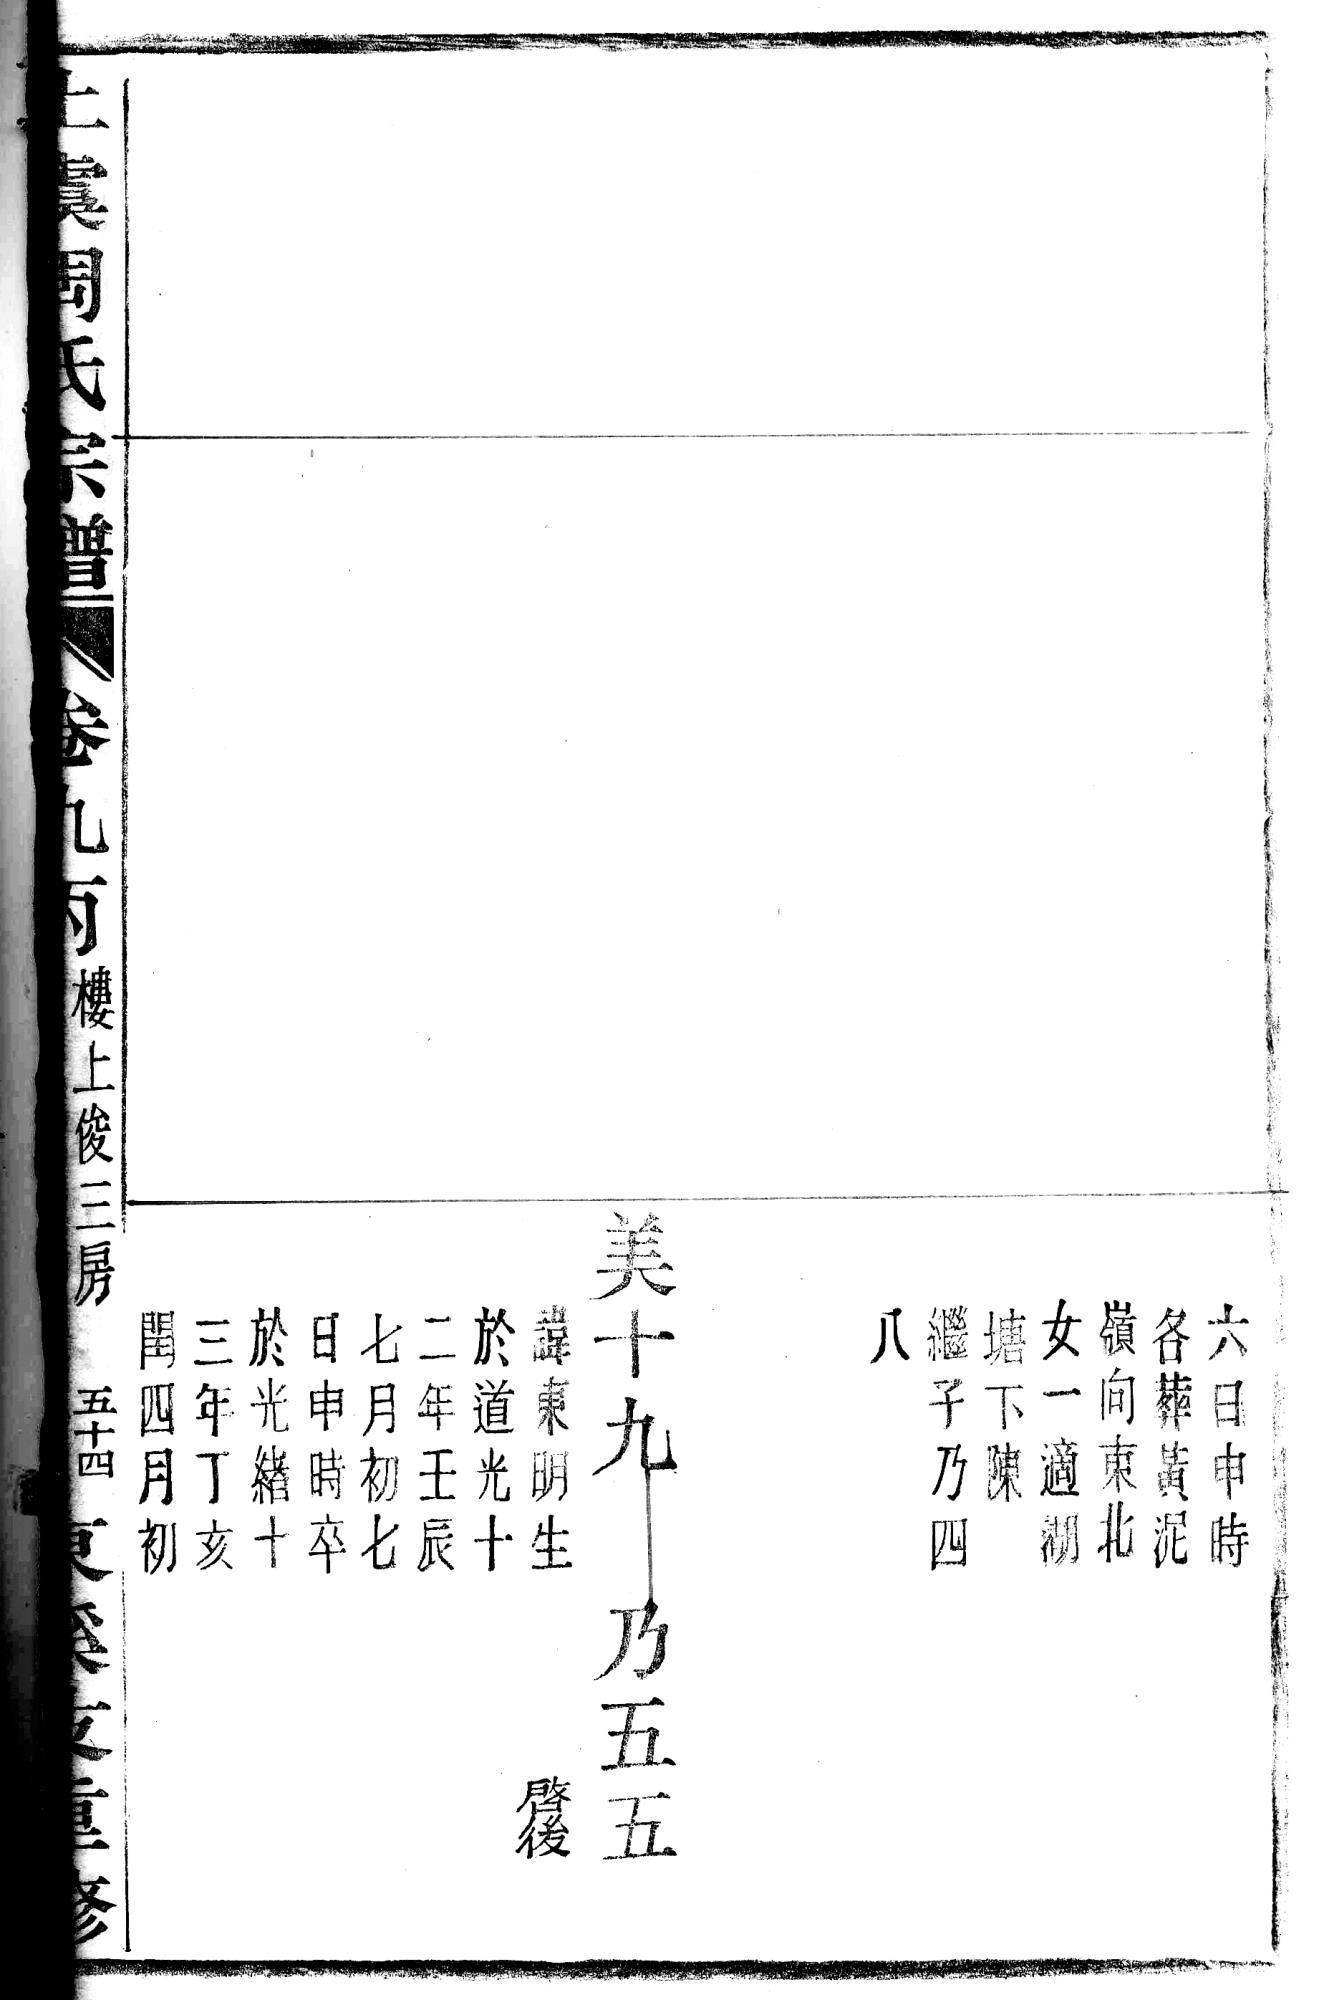 六日申時
各葬黃泥
嶺向東北
女一適湖
塘下陳
繼子乃四
八
美十九 乃五五
諱東明生 啓後
於道光十
二年壬辰
七月初七
日申時卒
於光緒十
三年丁亥
閏四月初
上虞周氏宗譜 卷九丙 樓上俊三房 五十四 東溪支重修